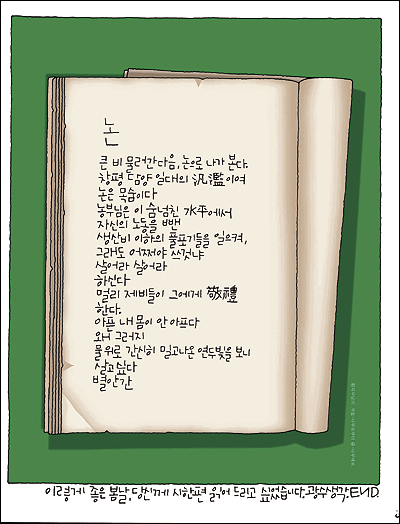 논
큰 비 물러간 다음, 논으로 나가 본다.
창평 담양 일대의 汎濫이여
논은 목숨이다
농부님은 이 숨넘친 水平에서
자신의 노동을 뺀
생산비 이하의 풀포기들을 일으켜,
그래도 어쩌야 쓰것냐
살어라 살어라
하신다
멀리 제비들이 그에게 敬禮
한다.
아픈 내 몸이 안 아프다
왜 그러지
물 위로 간신히 밀고나온 연두빛을 보니
살고 싶다
별안간
이렇게 좋은 봄날, 당신께 시 한편 읽어 드리고 싶었습니다. 광수생각. END.